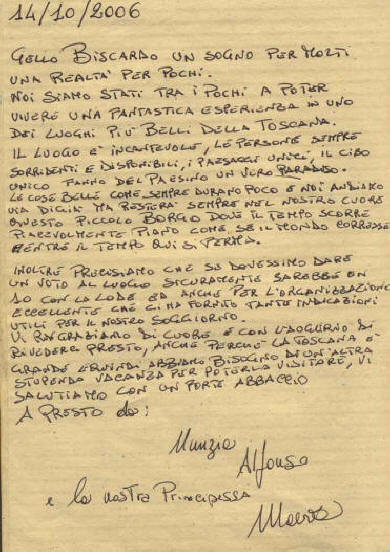 14/10/2006
GELLO BISCARDO UN SOGNO PER MOLTI
UNA REALTA' PER POCHI.
NOI SIAMO STATI TRA I POCHI A POTER
VIVERE UNA FANTASTICA ESPERIENZA IN UNO
DEI LUOGHI PIU' BELLI DELLA TOSCANA.
IL LUOGO E' INCANTEVOLE, LE PERSONE SEMPRE
SORRIDENTI E DISPONIBILI, I PAESAGGI UNICI, IL CIBO
UNICO FANNO DEL PAESINO UN VERO PARADISO.
LE COSE BELLE COME SEMPRE DURANO POCO E NOI ANDIAMO
VIA DI GIA' MA RESTERA' SEMPRE NEL NOSTRO CUORE
QUESTO PICCOLO BORGO DOVE IL TEMPO SCORRE
PIACEVOLMENTE PIANO COME SE IL MONDO CORRESSE
MENTRE IL TEMPO QUI SI FERMA.
INOLTRE PRECISIAMO CHE SE DOVESSIMO DARE
UN VOTO AL LUOGO SICURAMENTE SAREBBE UN
10 CON LA LODE ED ANCHE PER L'ORGANIZZAZIONE
ECCELLENTE CHE CI HA FORNITO TANTE INDICAZIONI
UTILI PER IL NOSTRO SOGGIORNO.
VI RINGRAZIAMO DI CUORE E CON L'AUGURIO DI
RIVEDERCI PRESTO, ANCHE PERCHE' LA TOSCANA E'
GRANDE E QUINDI ABBIAMO BISOGNO DI UN'ALTRA
STUPENDA VACANZA PER POTERLA VISITARE, VI
SALUTIAMO CON UN FORTE ABBACCIO
A PRESTO da:
Nunzia
Alfonso
e la nostra Principessa